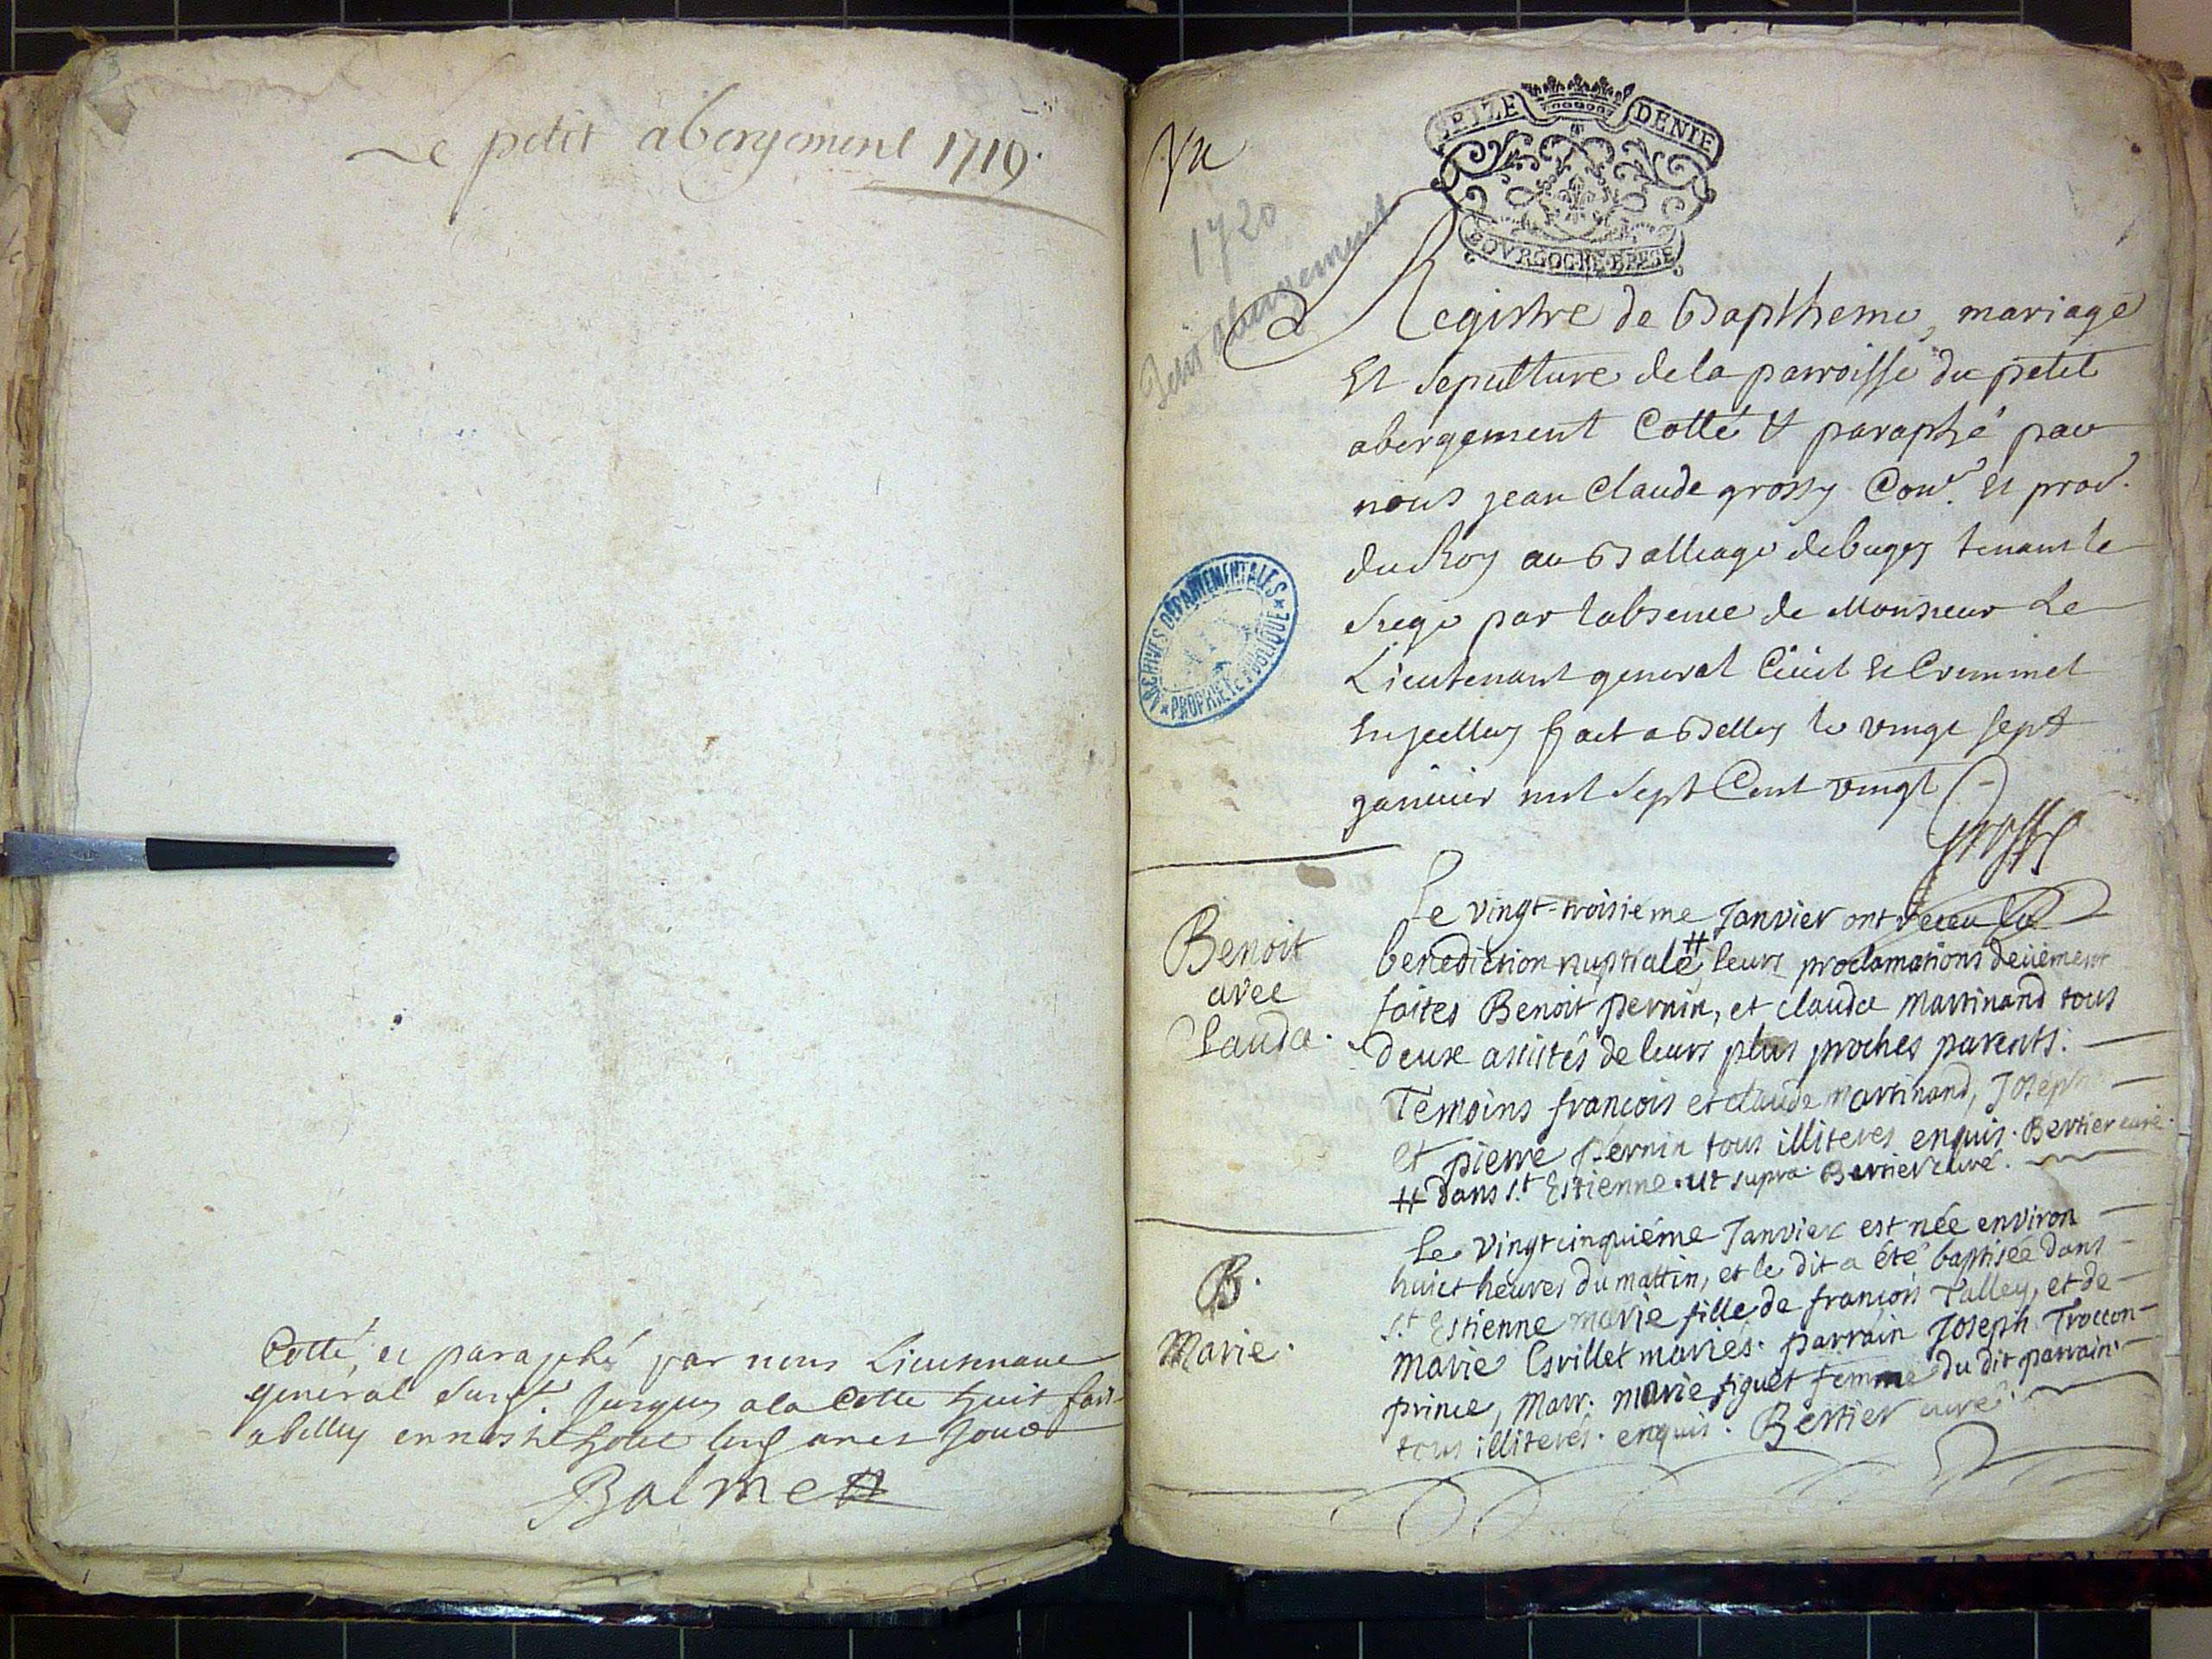 Le petit abergement 1719.
Cotté, et paraphé par nous Lieutenant
général jusques a la Cotte huit fait
a belley en nostre hotel
Balmett
Vu
SEIZE DENIE
BOVRGOGNE BRESSE
1720
Petit Abergement
Registre de Baptheme, mariage
Et Sepulture de la parroisse du petit
abergement Cotté & paraphé par
nous jean Claude grossy Conr. et procr.
du Roy au Balliage de bugey tenant le
Siege par labsence de Monsieur Le
Lieutenant general Civil et Criminel
En jcelluy fait a Belley le vingt sept
janvier mil Sept Cent vingt
Grossy
ARCHIVES DÉPARTEMENTALES
AIN
PROPRIÉTÉ PUBLIQUE
Benoit
avec
Clauda.
Le vingt-troisiéme Janvier ont receu la
benediction nuptiale # leurs proclamations deüement
faites Benoit pernin, et clauda Martinand tous
deux assistés de leurs plus proches parents.
Temoins françois et claude martinand, Joseph
et pierre pernin tous illiteres enquis. Bertier curé.
# dans St. Estienne. ut supra. Bertier curé.
B.
Marie.
Le vingtcinquiéme Janvier est née environ
huict heures du mattin, et le dit a été baptisée dans
St. Estienne marie fille de françois Talley, et de
Marie Esvillet mariés. parrain Joseph Troccon-
prince, Marr. marie figuet femme du dit parrain.
tous illiteres. enquis. Bertier curé.